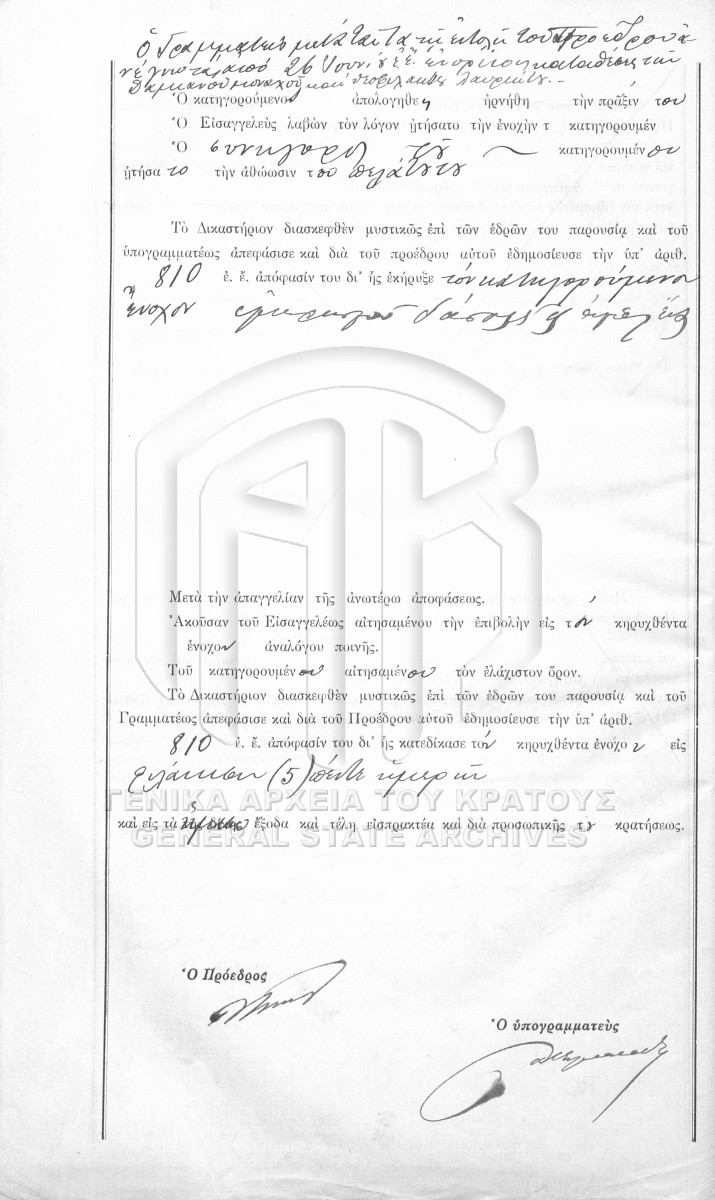 Ὁ Γραμματεὺς μετὰ ταῦτα τῇ ἐντολῇ τοῦ Προέδρου ἀ-
νέγνω τὰς ἀπὸ 26 ἐνόρκους καταθέσεις τῶν
Δαμιανοῦ μοναχοῦ καὶ
Ὁ κατηγορούμενον ἀπολογηθεὶς ἠρνήθη τὴν πρᾶξίν του
Ὁ Εἰσαγγελεὺς λαβὼν τὸν λόγον ᾐτήσατο τὴν ἐνοχὴν τ κατηγορουμέν
Ὁ συνήγορος τοῦ κατηγορουμένου
ᾐτήσατο τὴν ἀθώωσιν του πελάτου
Τὸ Δικαστήριον διασκεφθὲν μυστικῶς ἐπὶ τῶν ἑδρῶν του παρουσίᾳ καὶ τοῦ
ὑπογραμματέως ἀπεφάσισε καὶ διὰ τοῦ προέδρου αὐτοῦ ἐδημοσίευσε τὴν ὑπ' ἀριθ.
810 ἐ. ἔ. ἀπόφασίν του δι' ἧς ἐκήρυξε τὸν κατηγορούμενον
ἔνοχον ἐμπρησμοῦ δάσους ἐξ ἀμελείας
Μετὰ τὴν ἀπαγγελίαν τῆς ἀνωτέρω ἀποφάσεως.
Ἀκοῦσαν τοῦ Εἰσαγγελέως αἰτησαμένου τὴν ἐπιβολὴν εἰς τὸν κηρυχθέντα
ἔνοχον ἀναλόγου ποινῆς.
Τοῦ κατηγορουμένου αἰτησαμένου τὸν ἐλάχιστον ὅρον.
Τὸ Δικαστήριον διασκεφθὲν μυστικῶς ἐπὶ τῶν ἑδρῶν του παρουσίᾳ καὶ τοῦ
Γραμματέως ἀπεφάσισε καὶ διὰ τοῦ Προέδρου αὐτοῦ ἐδημοσίευσε τὴν ὑπ' ἀριθ.
810 ἐ. ἔ. ἀπόφασίν του δι' ἧς κατεδίκασε τὸν κηρυχθέντα ἔνοχον εἰς
φυλάκισιν (5) πέντε ἡμερῶν
ΓΕΝΙΚΑ ΑΡΧΕΙΑ ΤΟΥ ΚΡΑΤΟΥΣ
καὶ εἰς τὰ ἔξοδα καὶ τέλη εἰσπρακτέα καὶ διὰ προσωπικῆς του κρατήσεως.
GENERAL STATE ARCHIVES
Ὁ Πρόεδρος
Ὁ ὑπογραμματεὺς